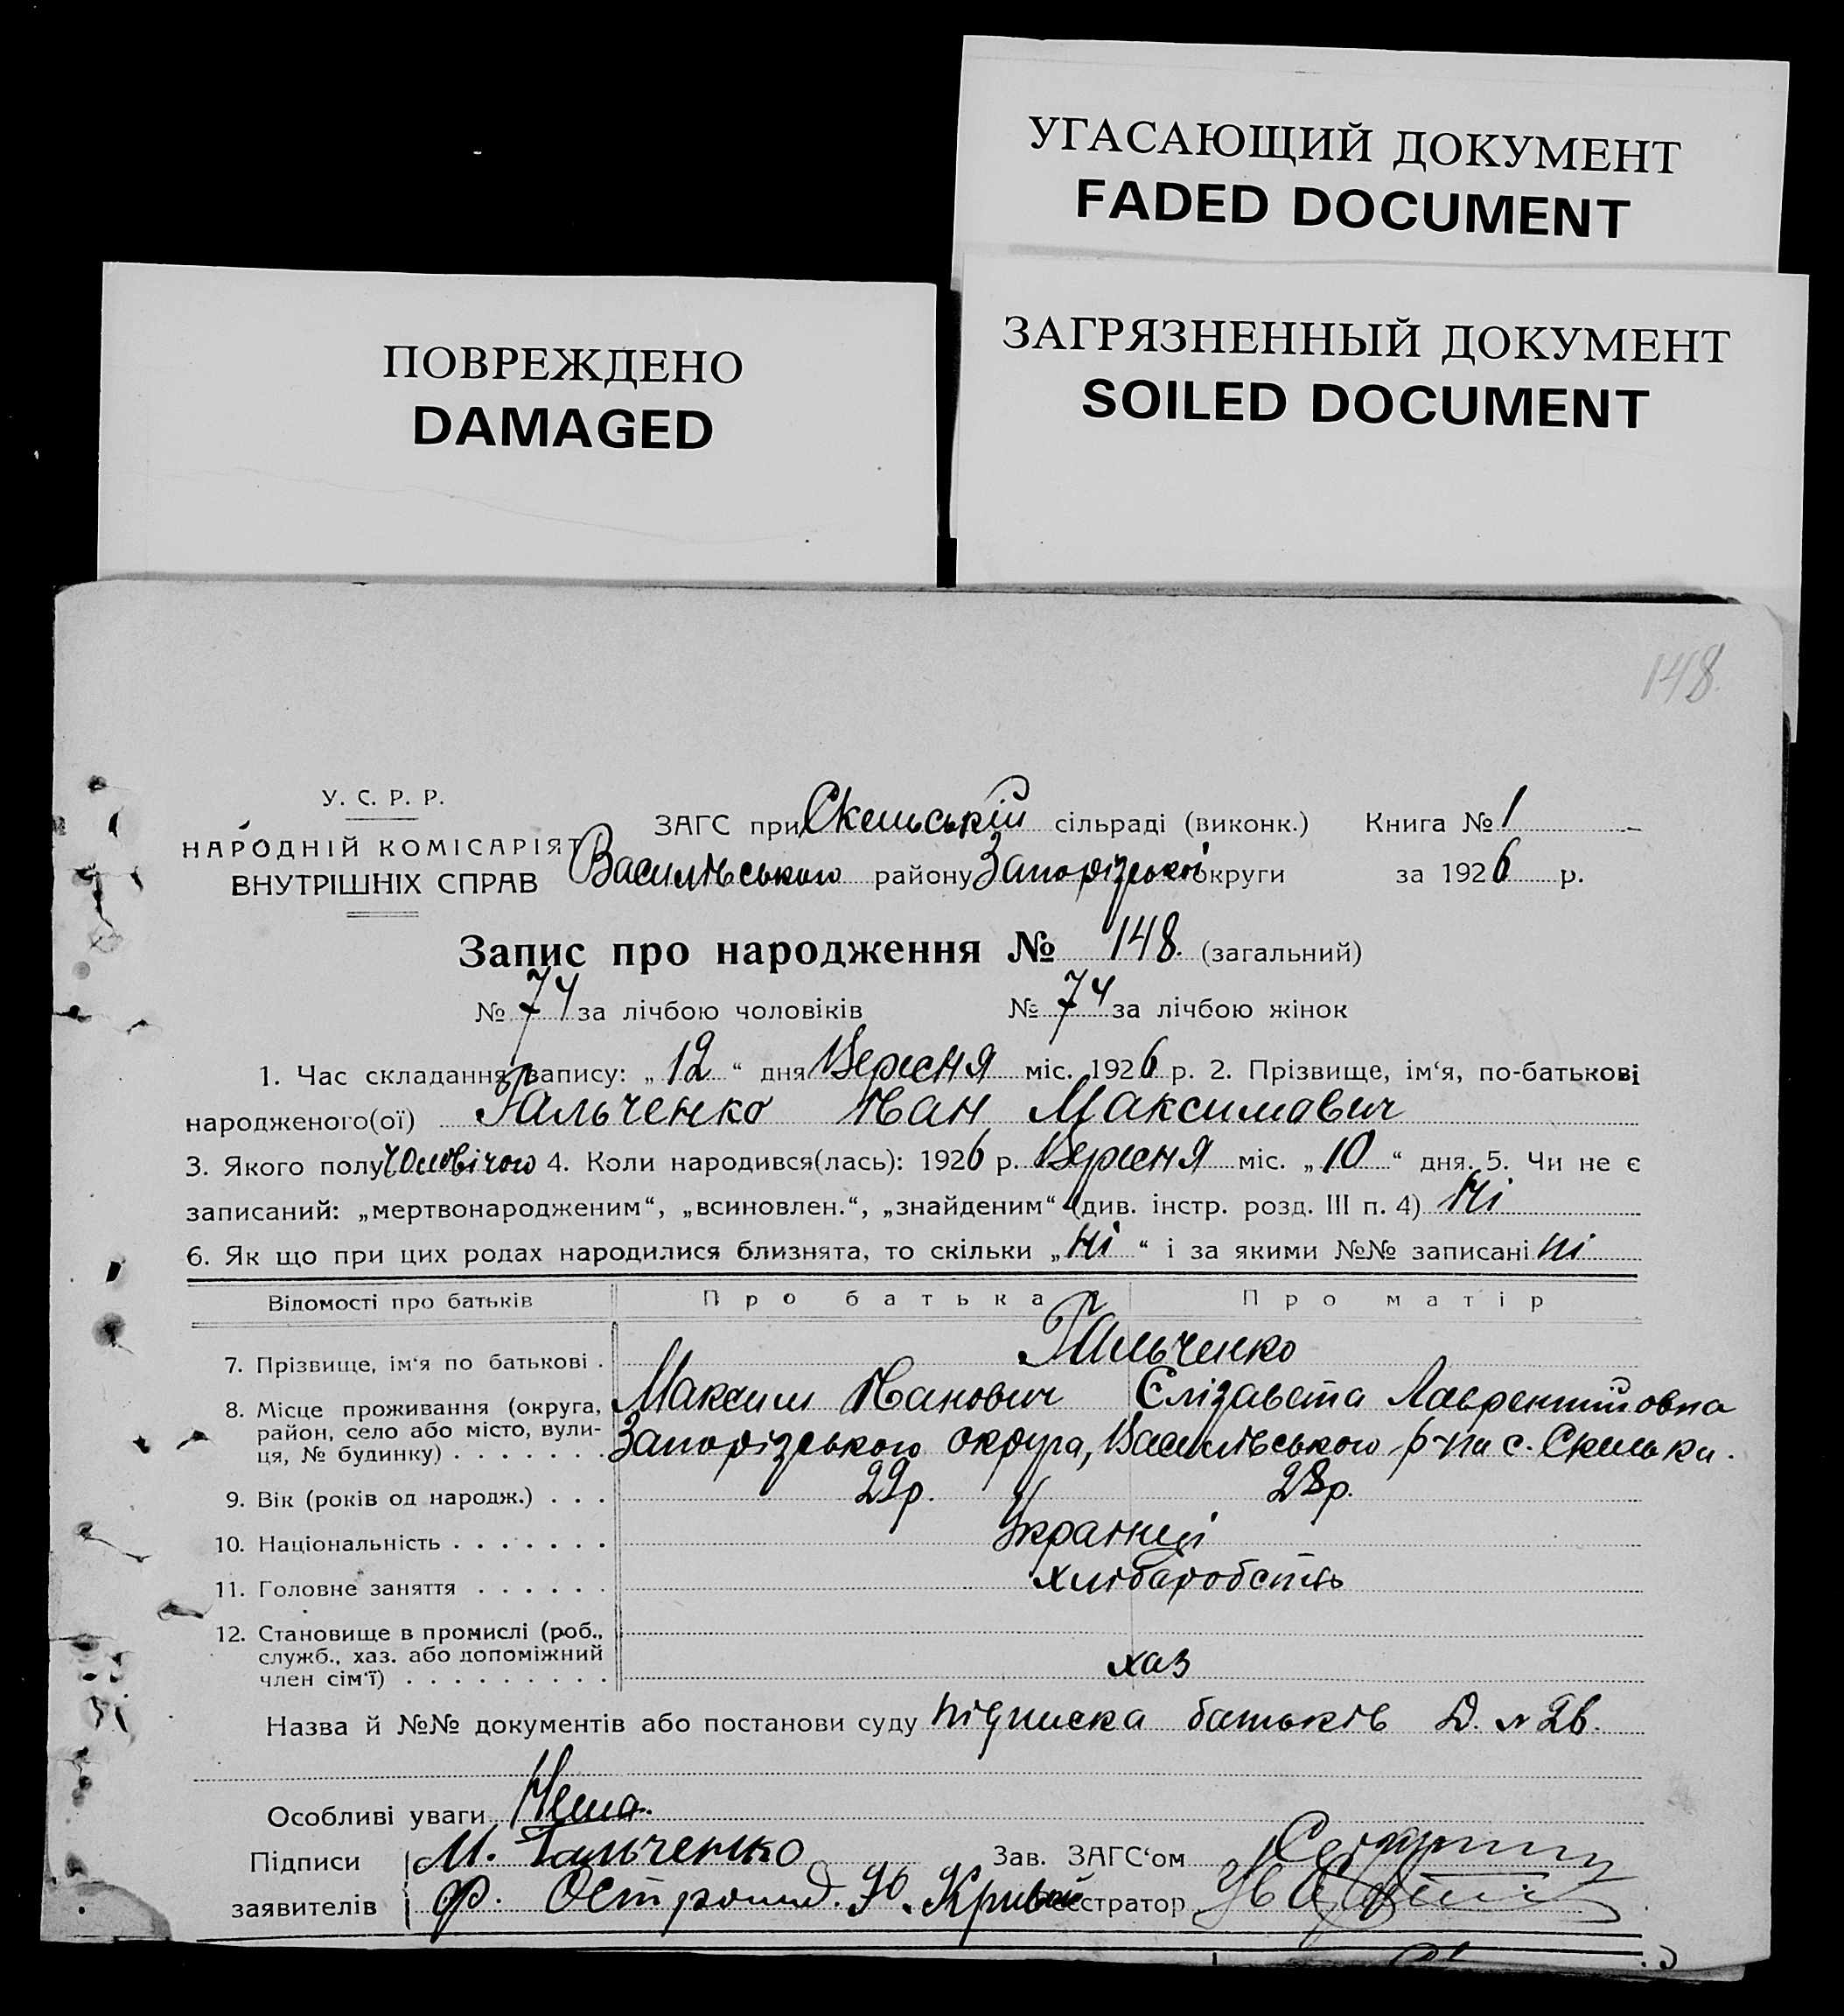 УГАСАЮЩИЙ ДОКУМЕНТ
FADED DOCUMENT
ЗАГРЯЗНЕННЫЙ ДОКУМЕНТ
SOILED DOCUMENT
ПОВРЕЖДЕНО
DAMAGED
148.
У. С. Р. Р.
НАРОДНІЙ КОМІСАРІЯТ
ВНУТРІШНІХ СПРАВ
ЗАГС при Скельській сільраді (виконк.) Книга № 1
Василівського району Запорізької округи за 1926 р.
Запис про народження № 148. (загальний)
№ 74 за лічбою чоловіків № 74 за лічбою жінок
1. Час складання запису: „12“ дня Вересня міс. 1926 р. 2. Прізвище, ім‘я, по-батькові
народженого(ої) Гальченко Іван Максимович
3. Якого полу Чоловічого 4. Коли народився(лась): 1926 р. Вересня міс. „10“ дня. 5. Чи не є
записаний: „мертвонародженим“, „всиновлен.“, „знайденим“ (див. інстр. розд. III п. 4) Ні
6. Як що при цих родах народилися близнята, то скільки „Ні“ і за якими №№ записані ні
Відомості про батьків Про батька Про матір
7. Прізвище, ім‘я по батькові . Гальченко
Максим Іванович Єлізавета Лаврентіївна
8. Місце проживання (округа, район, село або місто, вули-
ця, № будинку) . . . . . . . Запорізького округа, Василівського р-на с. Скельки.
9. Вік (років од народж.) . . . 22р. 28р.
10. Національність . . . . . . . Україній
11. Головне заняття . . . . . . хлібаробств
12. Становище в промислі (роб.,
служб., хаз. або допоміжний
член сім‘ї) . . . . . . . . . хаз
Назва й №№ документів або постанови суду підписка батьків Д. № 26.
Особливі уваги Нема.
Підписи М. Гальченко Зав. ЗАГС‘ом
заявителів Ф. Ю. Кривой Реєстратор